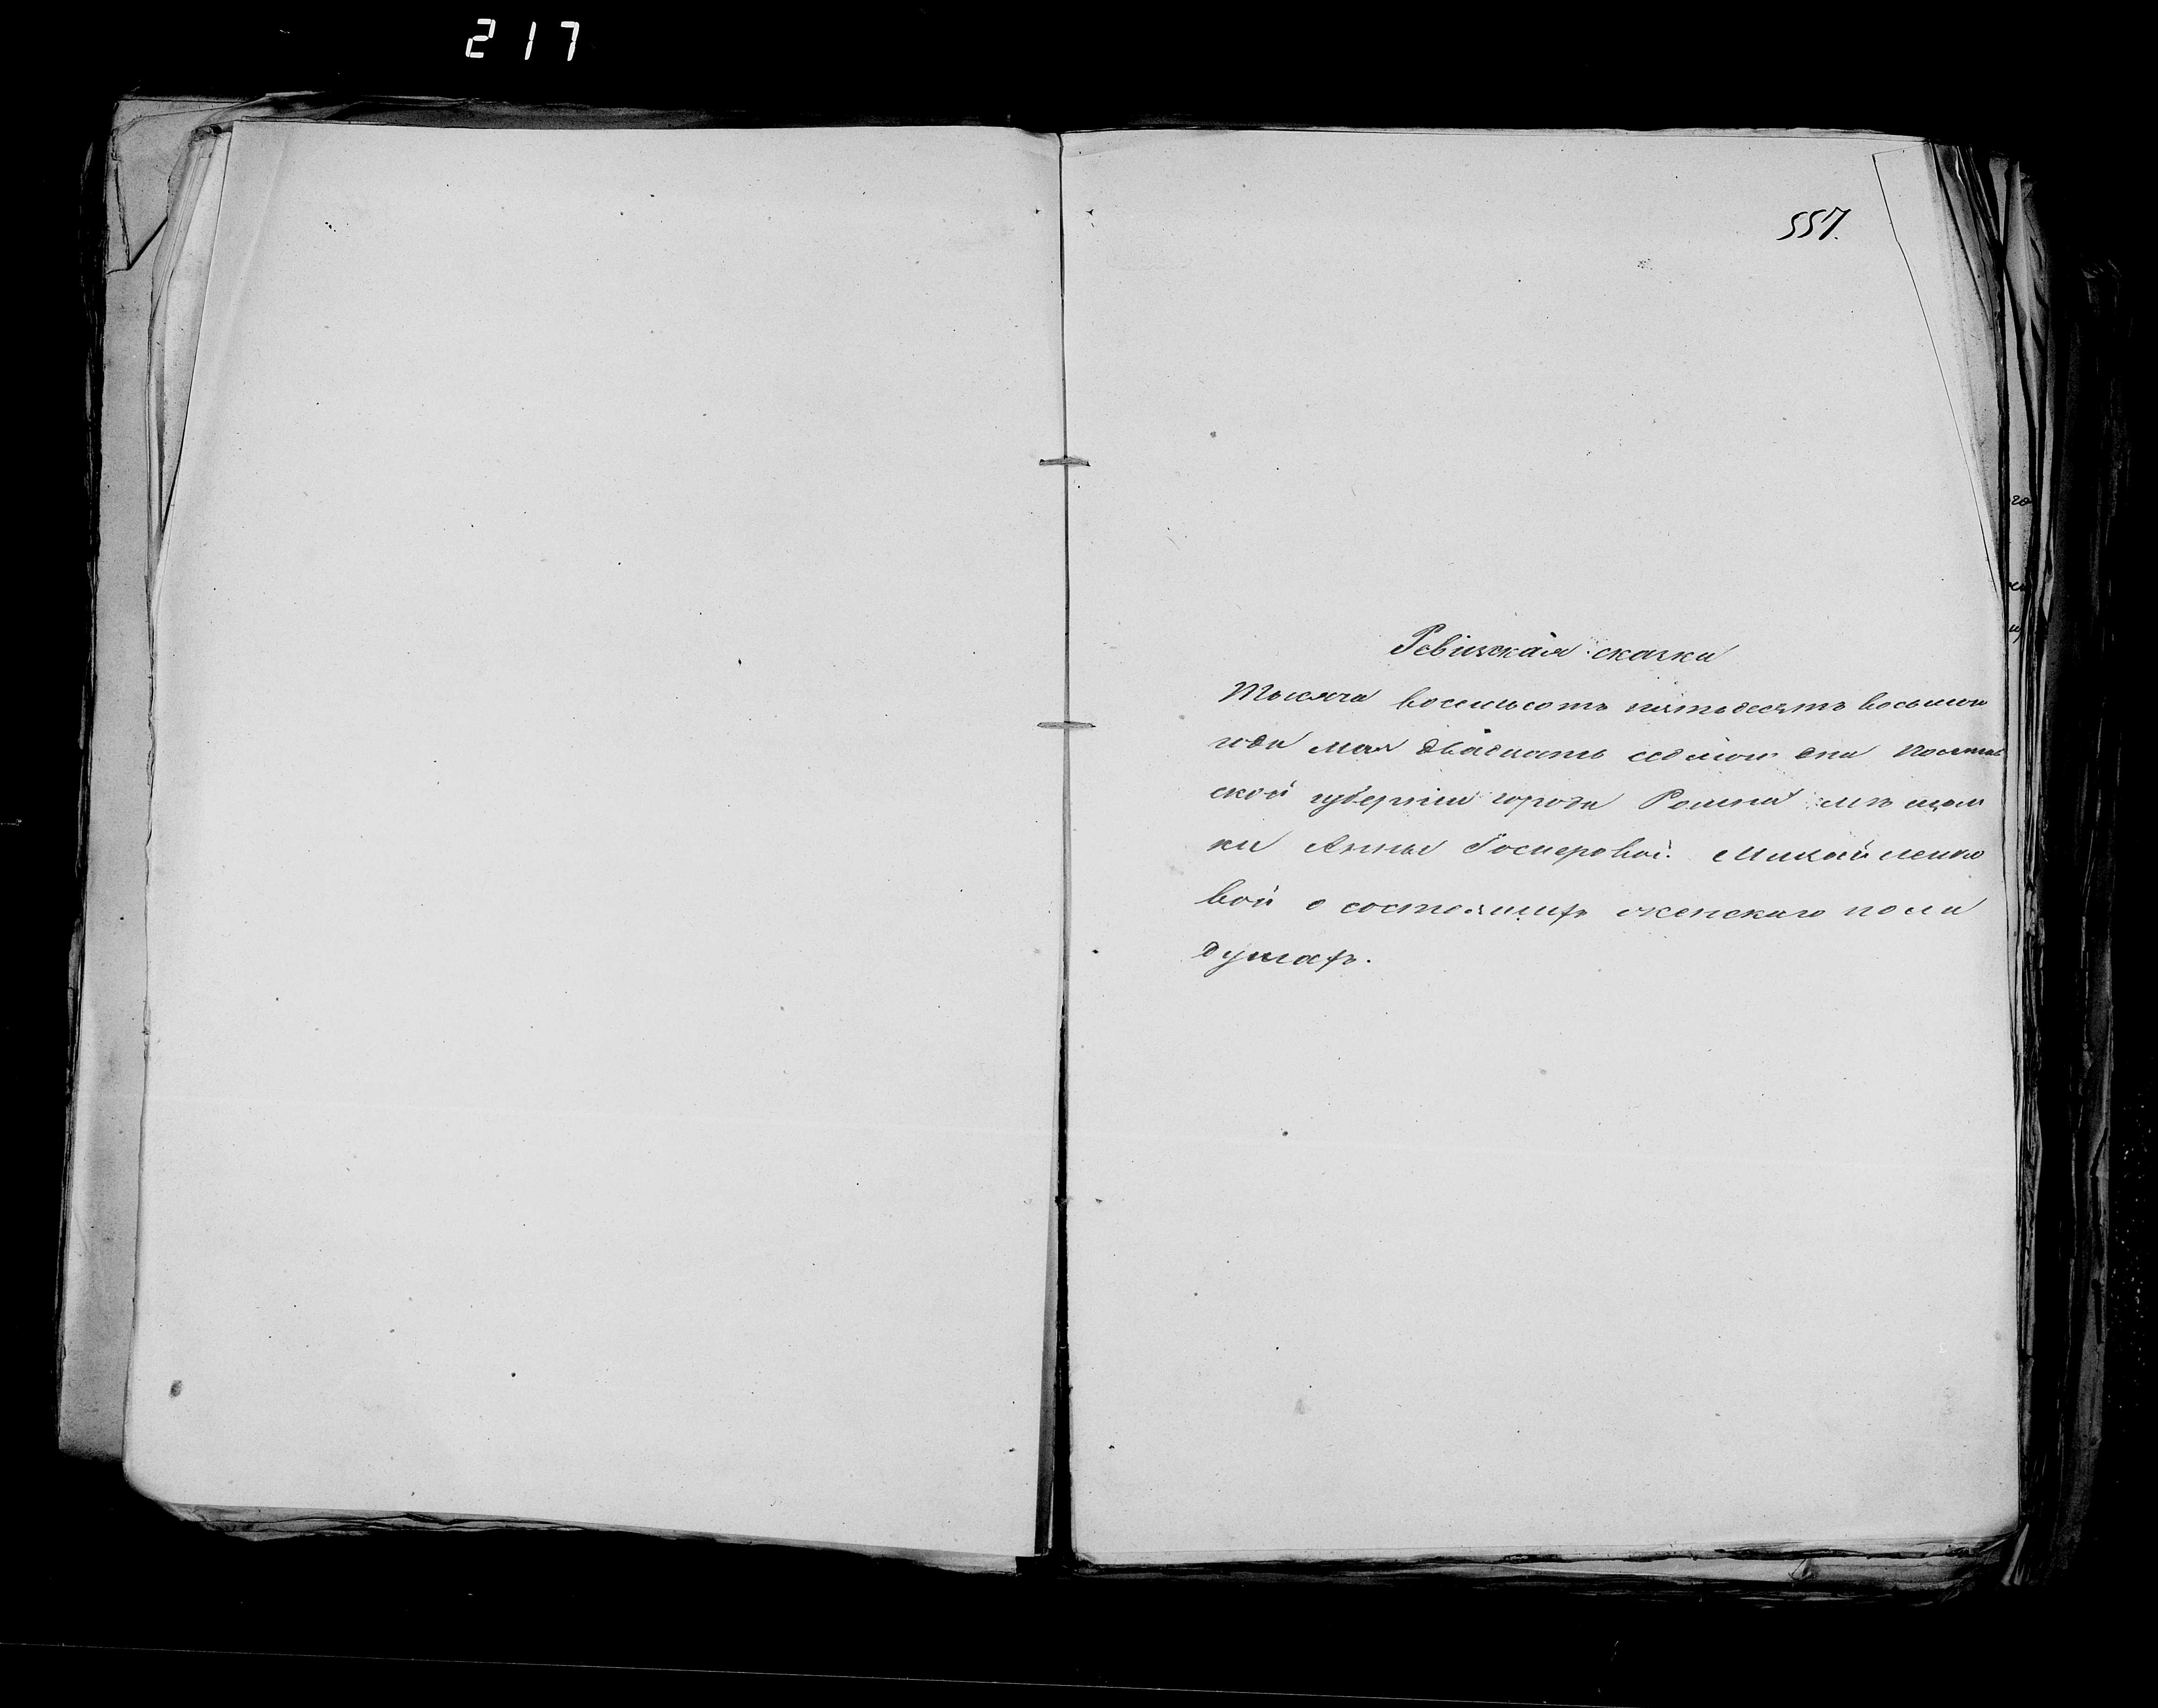 217
557.
Ревизская сказка
Тысяча восемьсотъ пятьдесятъ восьмого
года мая двадцать седмого дня Полтав
ской губерніи города Ромна мѣщан
ки Анны Госперовой Михайленко
вой о состоящихъ женскаго пола
душахъ.